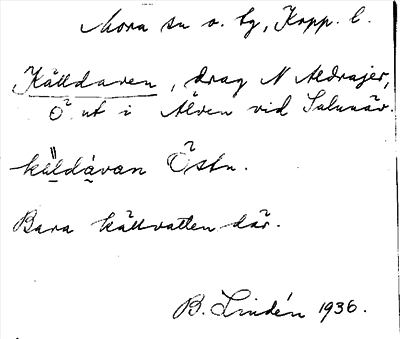 Mora sn o. tg, Kopp. l.
Källdaven, drag N Aldrajer,
Ö ut i Älven vid Salunäv.
kä̤ldä̤van Östn.
Bara källvatten där.
B. Lindén 1936.